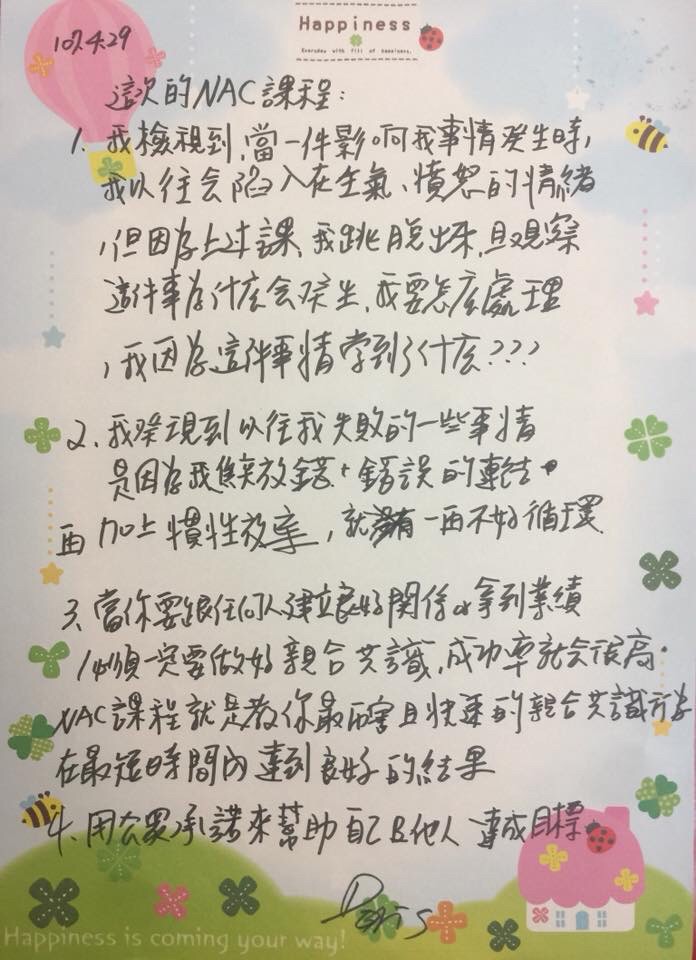 Happiness
Everyday with fill of happiness.
107.4.29
這次的NAC課程:
1. 我檢視到,當一件影响我事情發生時,
我以往会陷入在生氣、憤怒的情緒
,但因為上过課,我跳脫出來,且观察
這件事為什么会發生,我要怎么處理
,我因為這件事情学到了什么???
2、我發現到以往我失敗的一些事情
是因為我焦點放錯+錯誤的連結
再加上慣性放棄,就有一再不好循環.
3、當你要跟任何人建立良好関係or拿到業績
必須一定要做好親合共識,成功率就会很高.
NAC課程就是教你最正確且快速的親合共識方法
在最短時間內達到良好的結果
4、用公眾承諾來幫助自己及他人達成目標.
Doris
Happiness is coming your way!